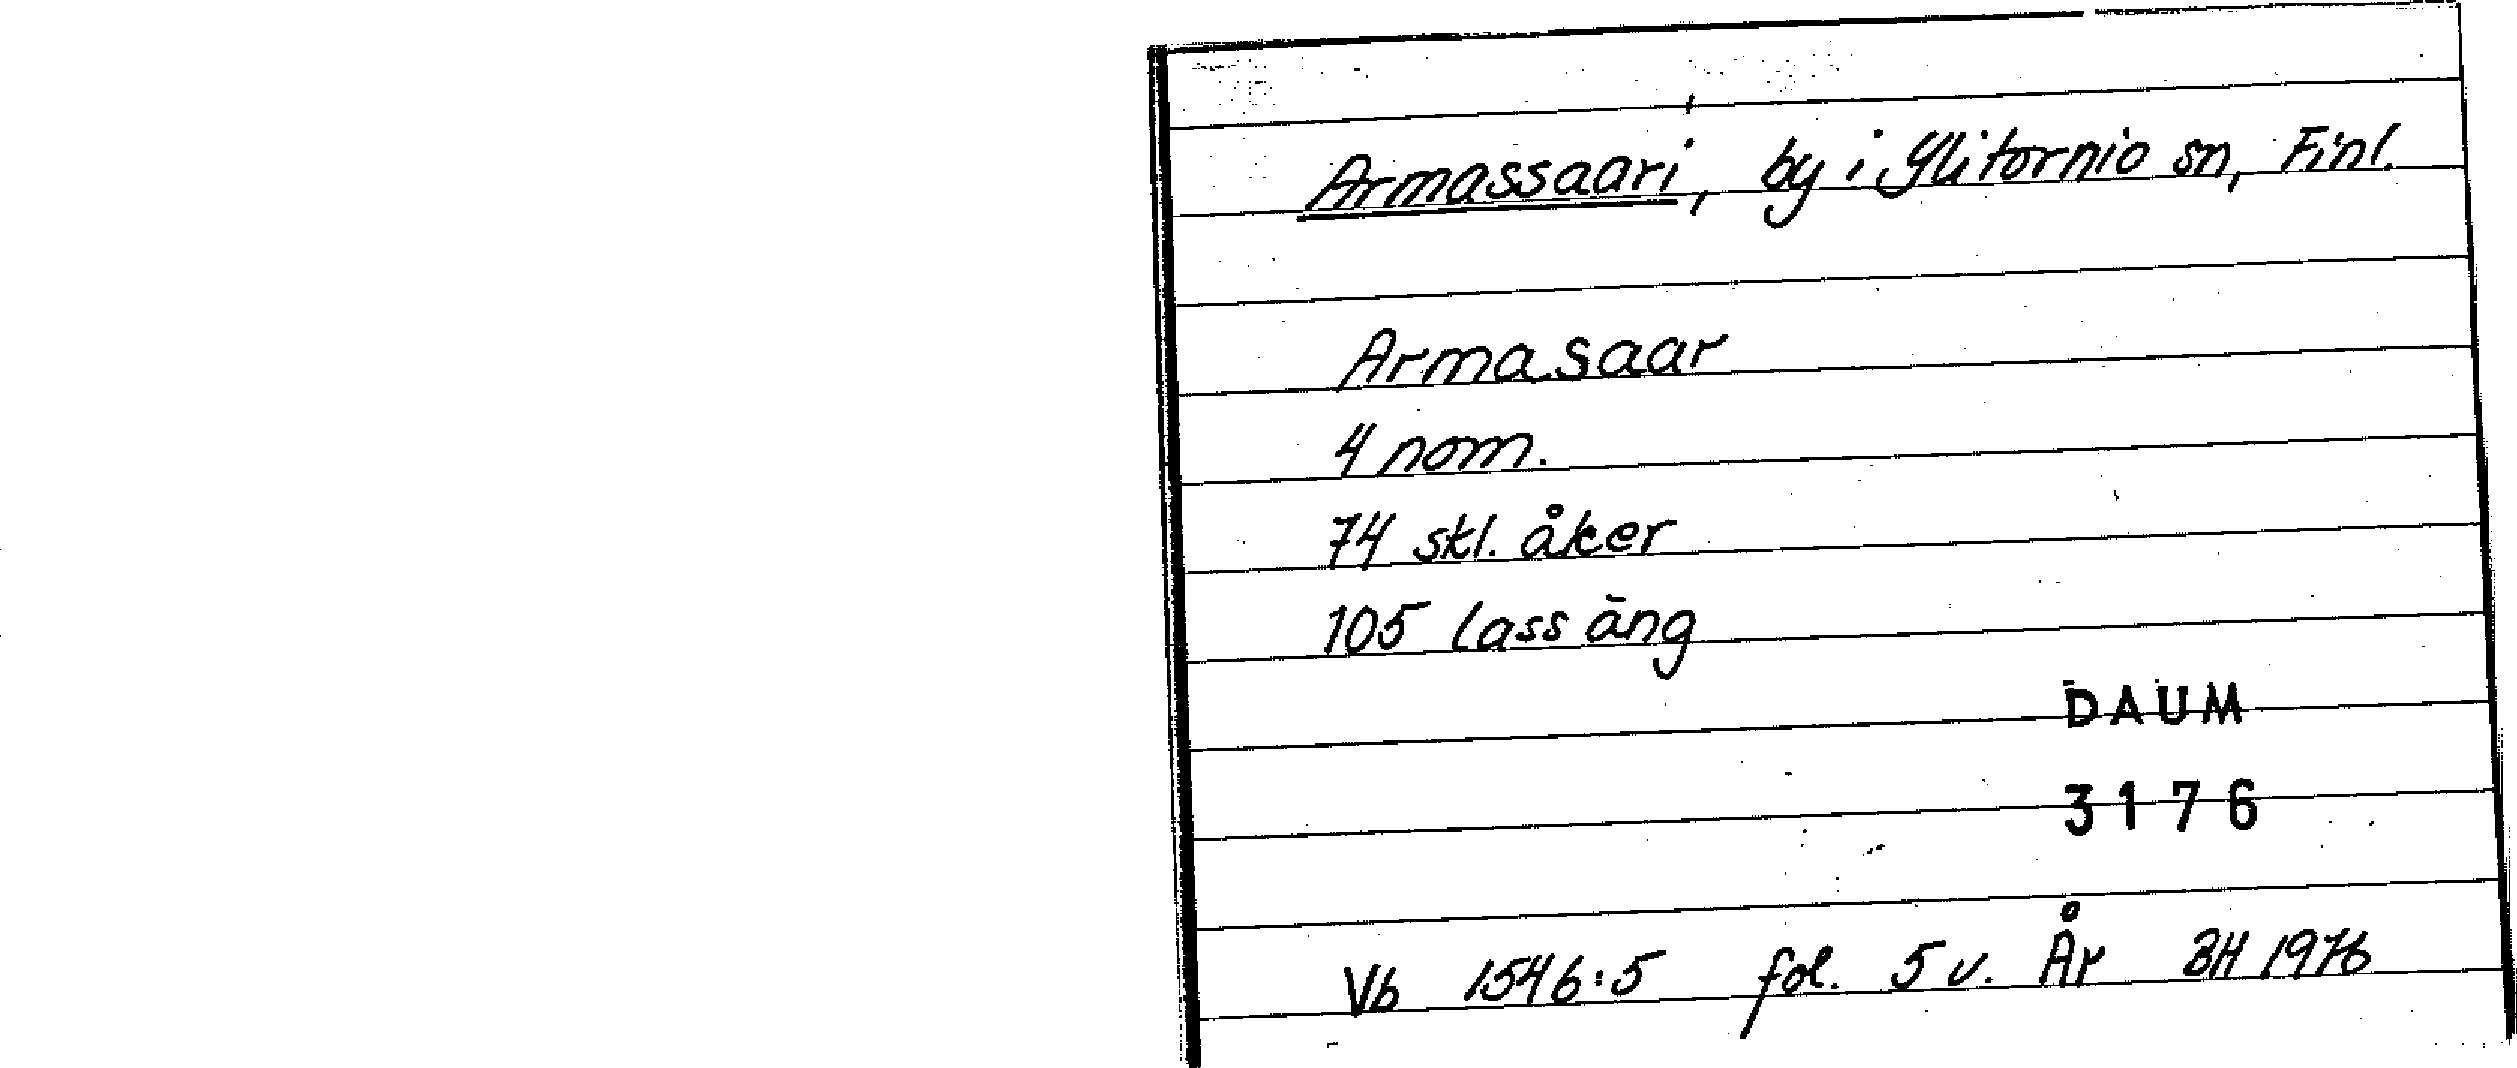 Armassaari, by i Ylitornio sn, Finl.
Armasaar
4 nom.
74 skl. åker
105 lass äng
DAUM
3176
Vb 1546:5 fol. 5 v. År BH 1976